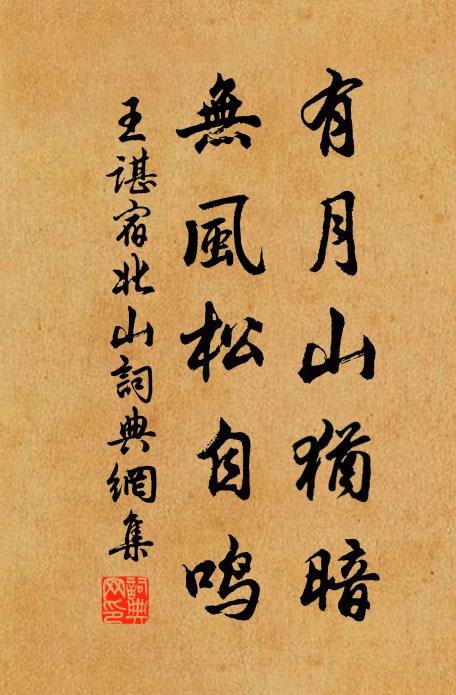 有月山猶暗
無風松自鳴
王諶宿北山詞典網集
詞典网印